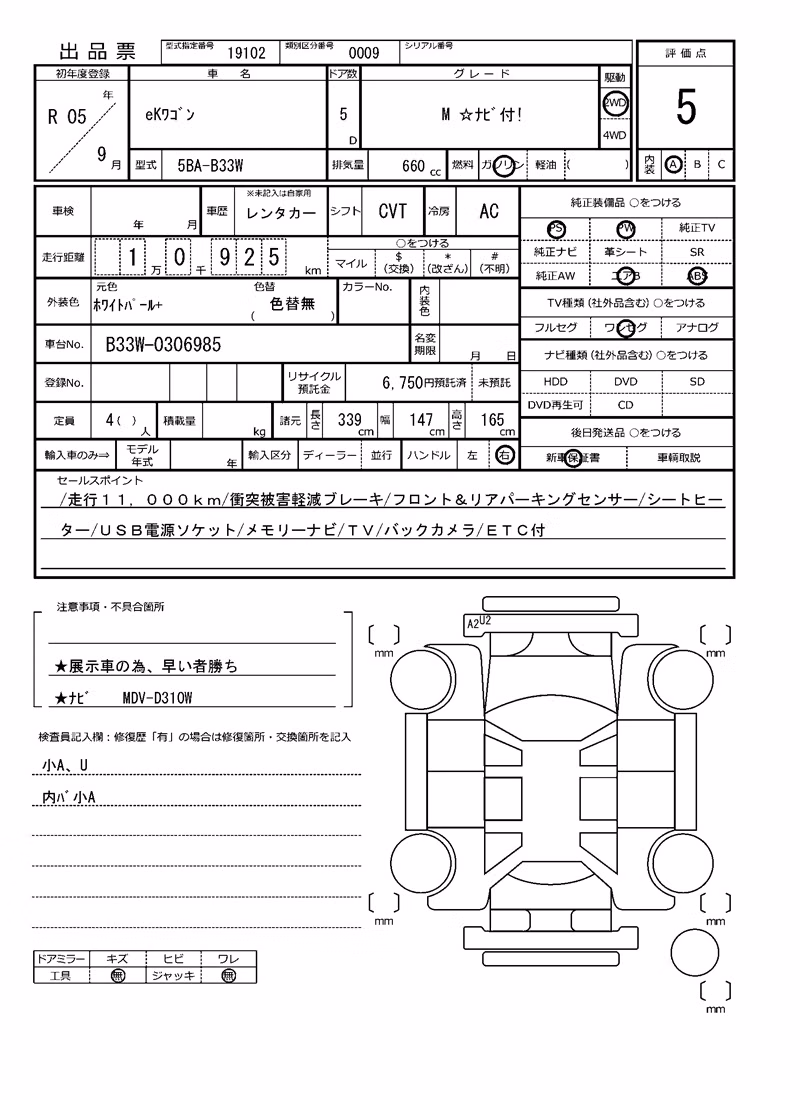 出品票
型式指定番号 19102 類別区分番号 0009 シリアル番号
評価点
5
内装 A B C
初年度登録 車名 ドア数 グレード 駆動
R 05 年 9 月 eKﾜｺﾞﾝ 5 D M ☆ﾅﾋﾞ付! 2WD 4WD
型式 5BA-B33W 排気量 660 cc 燃料 ガソリン 軽油 ( )
車検 年 月 車歴 ※未記入は自家用 レンタカー シフト CVT 冷房 AC
走行距離 1 万 0 千 9 2 5 km ○をつける マイル $ (交換) * (改ざん) # (不明)
外装色 元色 ﾎﾜｲﾄﾊﾟｰﾙ+ 色替 ( 色替無 ) カラーNo. 内装色
車台No. B33W-0306985 名変期限 月 日
登録No. リサイクル預託金 6,750円預託済 未預託
定員 4( ) 人 積載量 kg 諸元 長さ 339 cm 幅 147 cm 高さ 165 cm
輸入車のみ⇒ モデル年式 年 輸入区分 ディーラー 並行 ハンドル 左 右
純正装備品 ○をつける
PS PW 純正TV
純正ナビ 革シート SR
純正AW エアB ABS
TV種類(社外品含む) ○をつける
フルセグ ワンセグ アナログ
ナビ種類(社外品含む) ○をつける
HDD DVD SD
DVD再生可 CD
後日発送品 ○をつける
新車保証書 車輌取説
セールスポイント
/走行11，000km/衝突被害軽減ブレーキ/フロント＆リアパーキングセンサー/シートヒー
ター/USB電源ソケット/メモリーナビ/TV/バックカメラ/ETC付
注意事項・不具合箇所
★展示車の為、早い者勝ち
★ﾅﾋﾞ MDV-D310W
検査員記入欄：修復歴「有」の場合は修復箇所・交換箇所を記入
小A、U
内ﾊﾞ小A
ドアミラー キズ ヒビ ワレ
工具 無 ジャッキ 無
A2 U2
mm
mm
mm
mm
mm